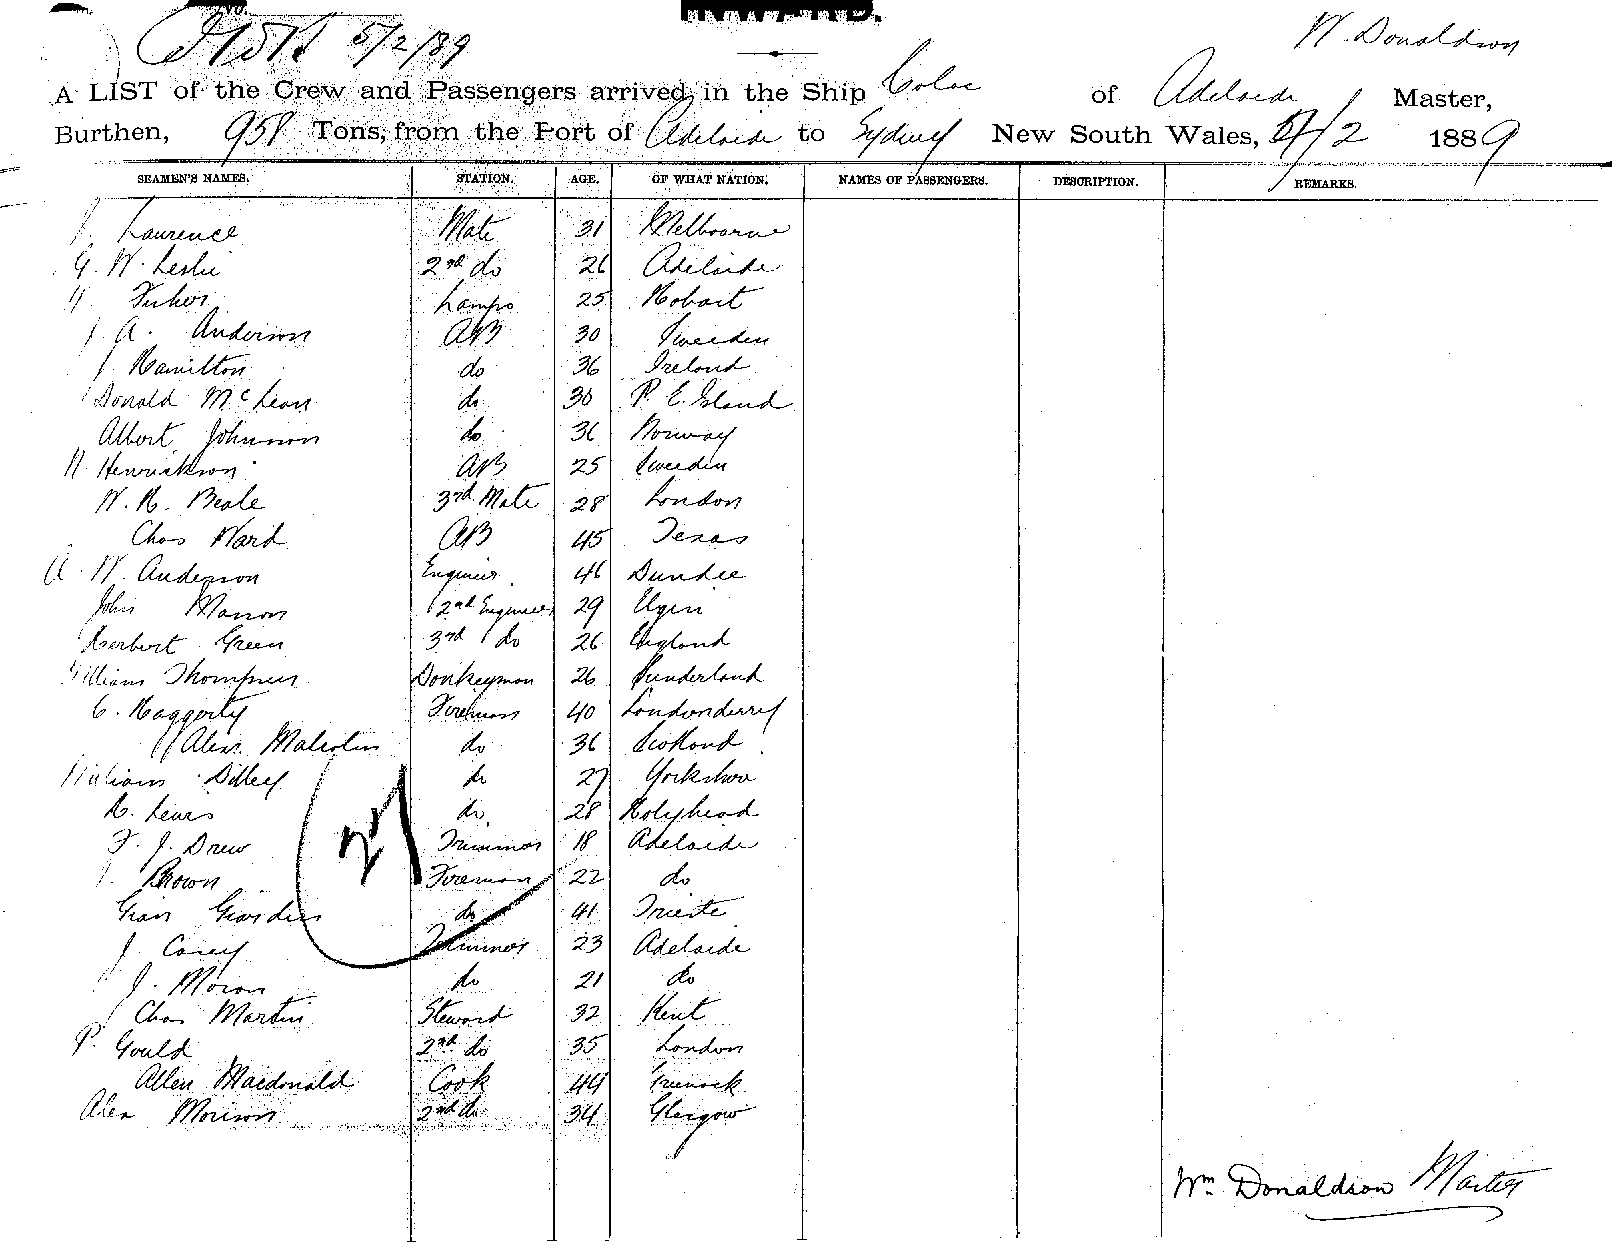 No.
INWARD.
5/2/89
W. Donaldson
A LIST of the Crew and Passengers arrived in the Ship Colac of Adelaide Master,
Burthen, 958 Tons, from the Port of Adelaide to Sydney New South Wales, 4/2 1889
SEAMEN'S NAMES. STATION. AGE. OF WHAT NATION. NAMES OF PASSENGERS. DESCRIPTION. REMARKS.
Laurence Mate 31 Melbourne
G. W. Leslie 2nd do 26 Adelaide
Lamps 25 Hobart
J. A. Anderson AB 30 Sweeden
J Hamilton do 36 Ireland
Donald McLean do 30 P. E. Island
Albert Johnson do 36 Norway
N. Henrickson AB 25 Sweeden
W. H. Beale 3rd Mate 28 London
Chas Ward AB 45 Texas
A. W. Anderson Engineer 46 Dundee
John Manson 2nd Engineer 29 Elgin
Herbert Green 3rd do 26 England
William Thompson Donkeyman 26 Sunderland
C. Haggerty Fireman 40 Londonderry
Alexr Malcolm do 36 Scotland
William Dilley do 27 Yorkshire
H. Lewis do 28 Holyhead
F. J. Drew Trimmer 18 Adelaide
J. Brown Fireman 22 do
Gian do 41 Trieste
J Carey Trimmer 23 Adelaide
J. Moran do 21 do
Chas Martin Steward 32 Kent
P. Gould 2nd do 35 London
Allen Macdonald Cook 44 Greenock
Alex Morison 2nd do 34 Glasgow
27
Wm Donaldson Master